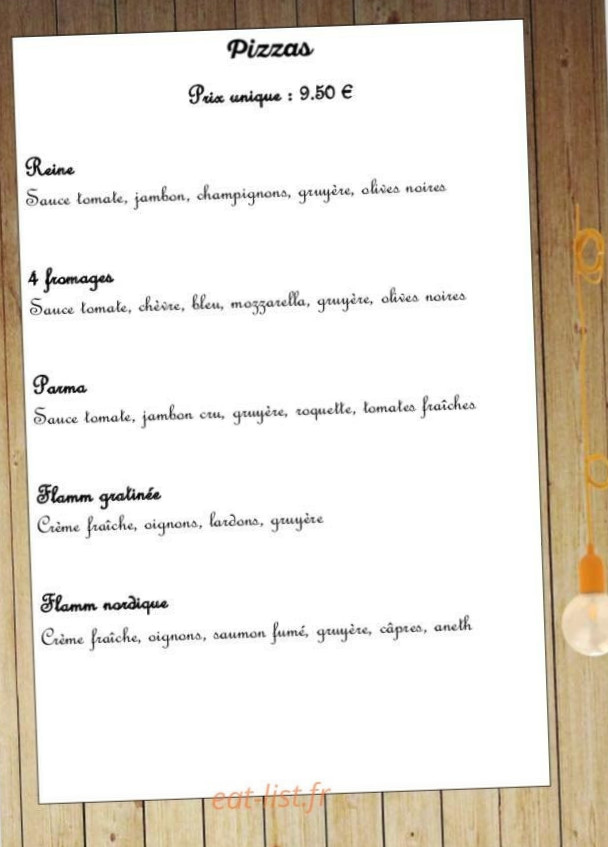 Pizzas
Prix unique : 9.50 €
Reine
Sauce tomate, jambon, champignons, gruyère, olives noires
4 fromages
Sauce tomate, chèvre, bleu, mozzarella, gruyère, olives noires
Parma
Sauce tomate, jambon cru, gruyère, roquette, tomates fraîches
Flamm gratinée
Crème fraîche, oignons, lardons, gruyère
Flamm nordique
Crème fraîche, oignons, saumon fumé, gruyère, câpres, aneth
eat-list.fr